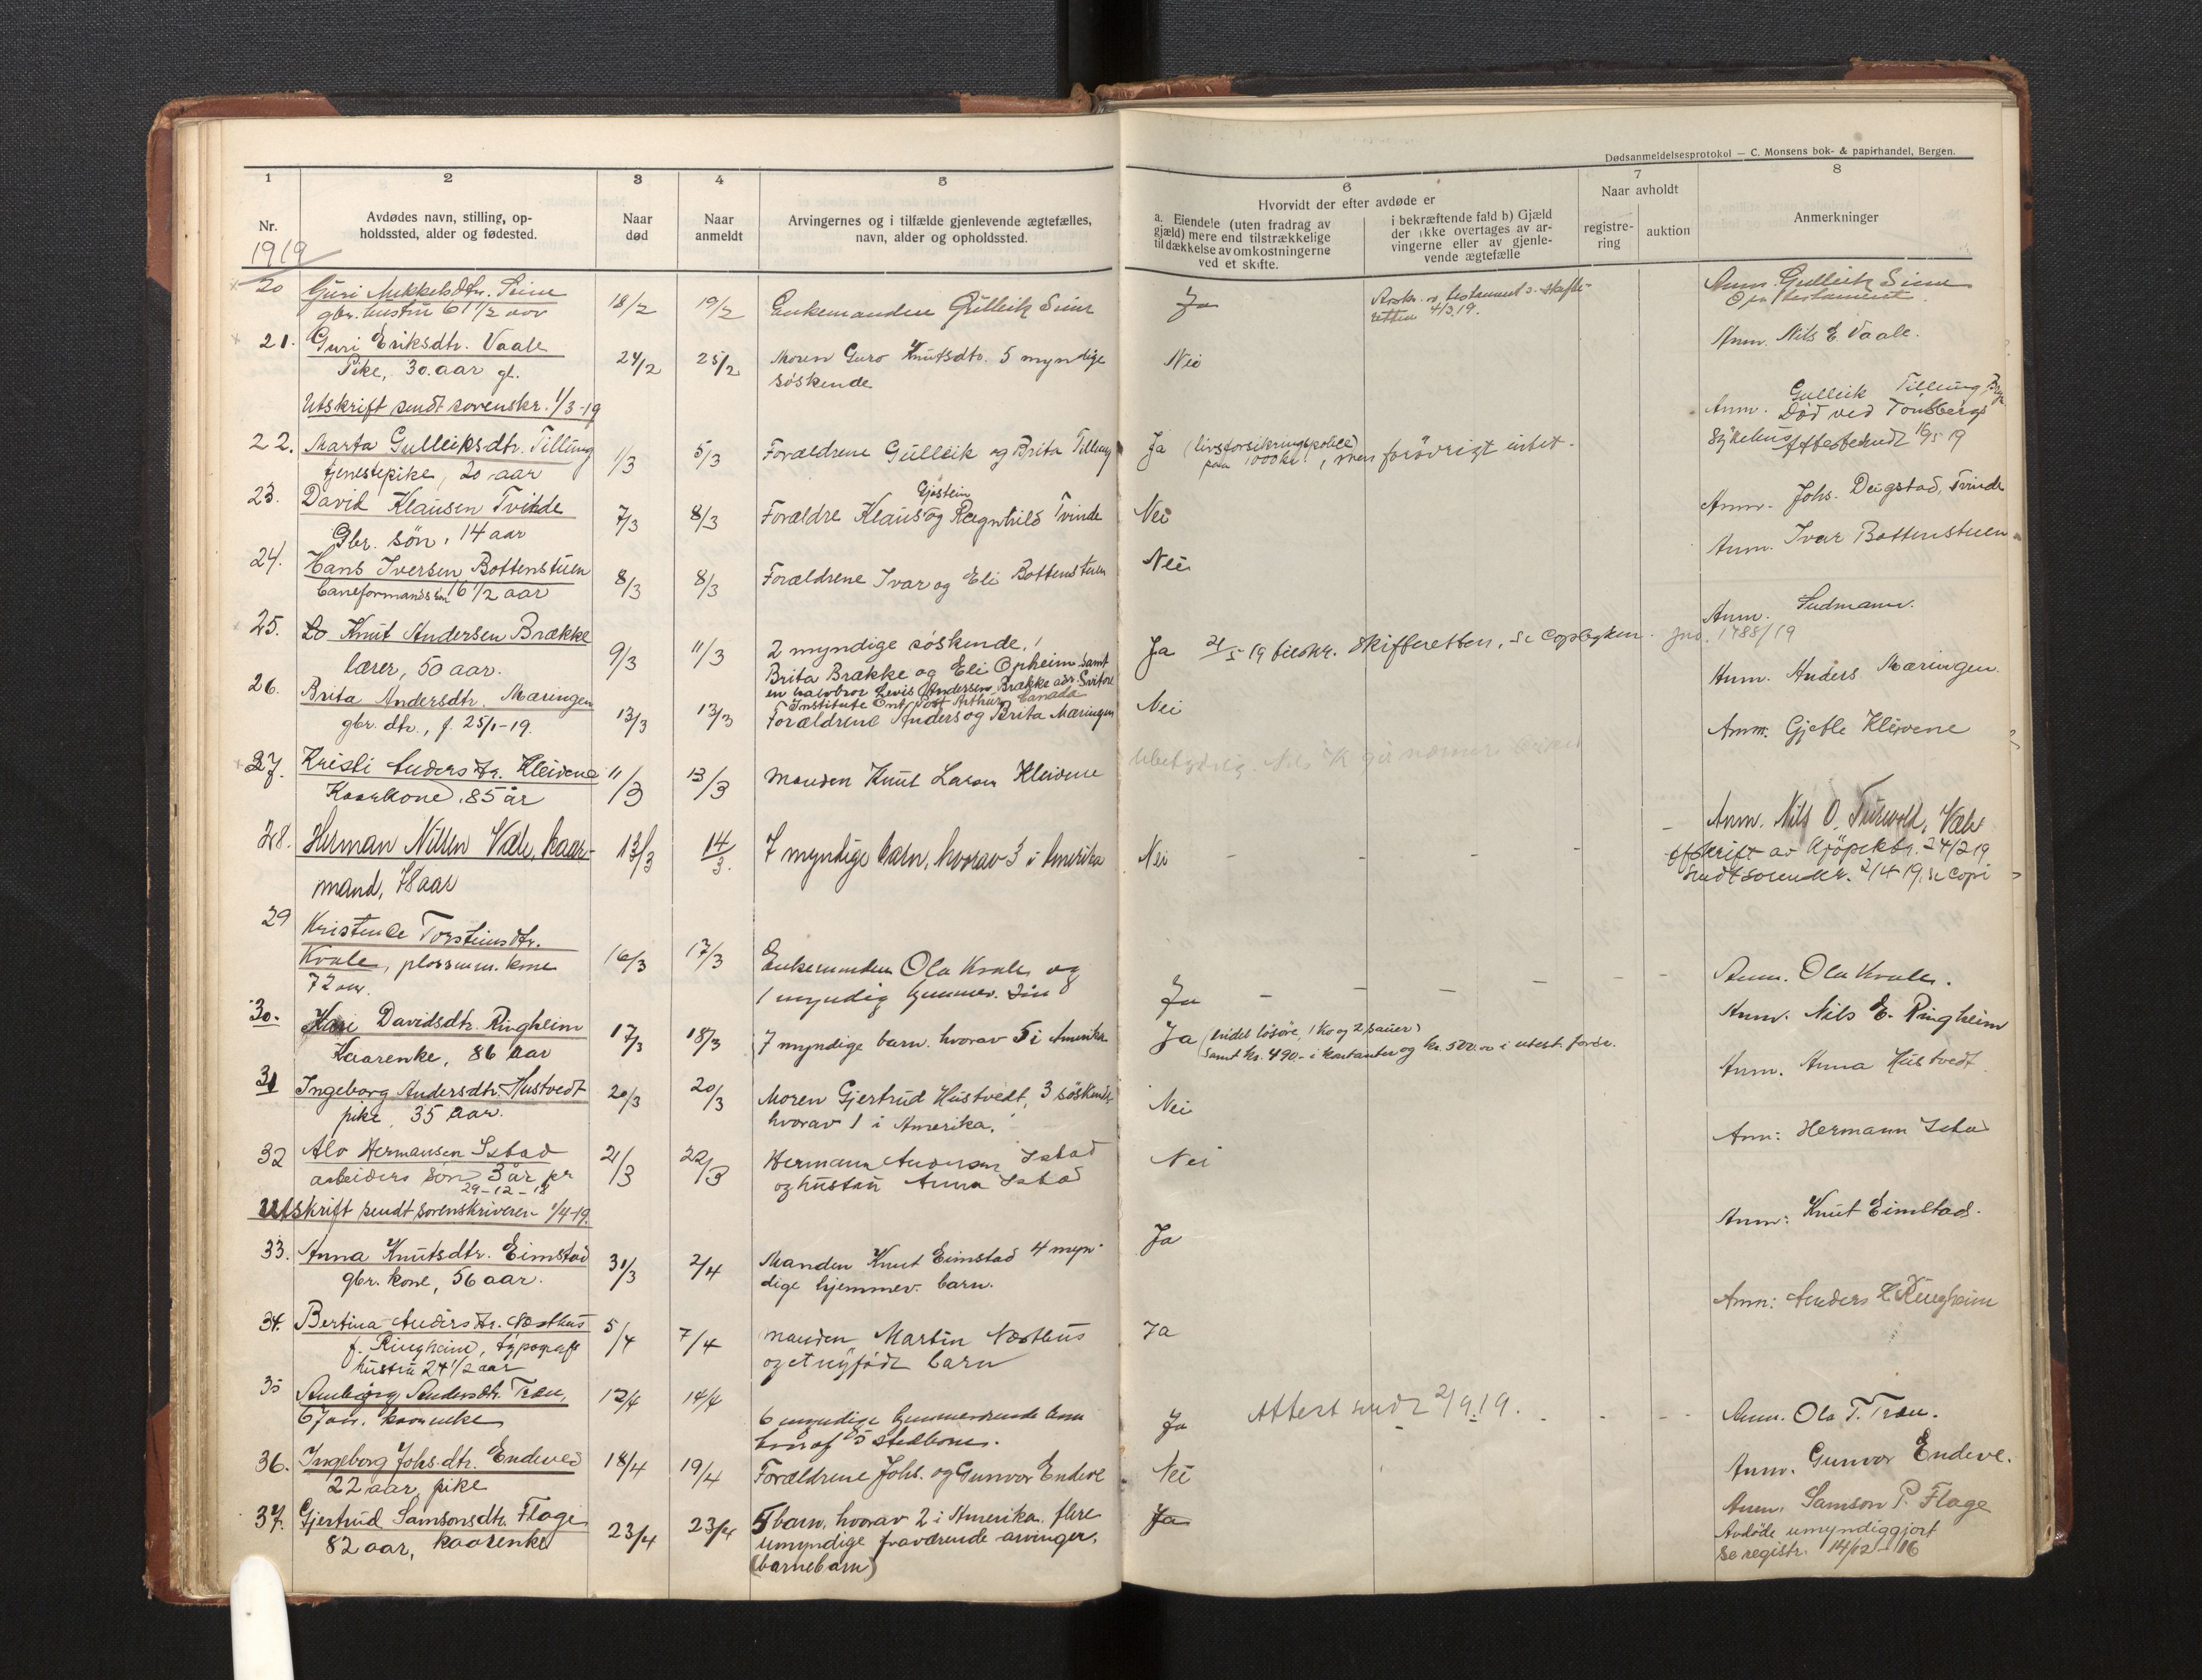 Dødsanmeldelsesprotokol — C. Monsens bok- & papirhandel, Bergen.
1 2 3 4 5 6 7 8
Nr.
Avdødes navn, stilling, op-
holdssted, alder og fødested.
Naar
død
Naar
anmeldt
Arvingernes og i tilfælde gjenlevende ægtefælles,
navn, alder og opholdssted.
Hvorvidt der efter avdøde er
a. Eiendele (uten fradrag av
gjæld) mere end tilstrækkelige
til dækkelse av omkostningerne
ved et skifte.
i bekræftende fald b) Gjæld
der ikke overtages av ar-
vingerne eller av gjenle-
vende ægtefælle
Naar avholdt
registre-
ring
auktion
Anmerkninger
1919
20 Guri Mikkelsdtr. 18/2 19/2 Enkemanden Gulleik Ja Anm. Gulleik
gbr. hustru 61 1/2 aar testament
4/3 19.
21. Guri Eriksdtr. Vaale 24/2 25/2 Moren Guro Knutsdtr. 5 myndige Nei Anm. Nils E. Vaale.
Pike, 30 aar gl. søskende
Utskrift sendt sorenskr. 1/3-19
22. Marta Gulleiksdtr. Tillung 1/3 5/3 Forældrene Gulleik og Brita Tillung Ja (livsforsikringspolice) Anm. Gulleik Tillung
tjenestepike, 20 aar paa 1000 kr., men forøvrigt intet. Død ved Tønsbergs
Sykehus Attest sendt 19
23. David Klausen Tvinde 7/3 8/3 Forældre Klaus Gjøstein og Ragnhild Tvinde Nei Anm. Johs. Dugstad, Tvinde
Gbr. søn, 14 aar
24. Hans Iversen Bottenstuen 8/3 8/3 Forældrene Ivar og Eli Bottenstuen Nei Anm. Ivar Bottenstuen
baneformands søn 16 1/2 aar
25. Knut Andersen Brække 9/3 11/3 2 myndige søskende, Ja skifteretten. Se Copibyken. Anm. Sudmann.
lærer, 50 aar. Brita Brække og Eli Opheim samt 1788/19
en halvbror Levis Andersen Brække adr.
Institute Ont. Port Arthur Canada
26. Brita Andersdtr. Mæringen 13/3 13/3 Forældrene Anders og Brita Mæringen Nei Anm. Anders Mæringen.
gbr. dtr., f. 25/1-19.
27. Kristi Andersdtr. Kleivene 11/3 13/3 Manden Knut Larsen Kleivene Anm. Gjetle Kleivene
Kaarkone, 85 år
28. Herman Nilsen Væle, kaar- 13/3 14/3. 7 myndige barn, hvorav 3 i Amerika Nei Anm. Nils O.
mand, 78 aar 24/2 19
2/4 19, se copi
29 Torsteinsdtr. 16/3 17/3 Enkemanden Ola Kvale og Ja Anm. Ola Kvale.
Kvale, kone 1 myndig hjemmev. søn
72 aar.
30. Kari Davidsdtr. Ringheim 17/3 18/3 7 myndige barn. hvorav 5 i Amerika Ja (endel løsøre, 1 ko og 2 sauer) Anm. Nils E. Ringheim
Kaarenke, 86 aar samt kr. 490.- i kontanter og kr. 500.00 i utest. fordr.
31 Ingeborg Andersdtr. Hustvedt 20/3 20/3 Moren Gjertrud Hustvedt, 3 søskende Nei Anm. Anna Hustvedt
pike, 35 aar. hvorav 1 i Amerika.
32 Alv Hermansen Istad 21/3 22/3 Hermann Andersen Istad Nei Anm: Hermann Istad
arbeiders søn 3 år pr og hustru Anna Istad
29-12-18
Utskrift sendt sorenskriveren 1/4-19.
33. Anna Knutsdtr. Eimstad 31/3 2/4 Manden Knut Eimstad 4 myn- Ja Anm: Knut Eimstad.
gbr. kone, 56 aar. dige hjemmev. barn.
34. Bertina Andersdtr. Næsthus 5/4 7/4 manden Martin Næsthus Ja Anm: Anders L. Ringheim
f. Ringheim, typografs og et nyfødt barn
hustru 24 1/2 aar
35 Andersdtr. Træn, 12/4 14/4 6 myndige hjemmeværende barn Ja Attest sendt 2/9.19. Anm. Ola T. Træn.
67 aar. kaarenke hvoraf 5 stedbørn.
36. Ingeborg Johs.dtr. Endeve 18/4 19/4 Forældrene Johs. og Gunvor Endeve Nei Anm. Gunvor Endeve.
22 aar, pike
37. Gjertrud Samsonsdtr. Flage 23/4 23/4 5 barn, hvorav 2 i Amerika. flere Ja Anm. Samson P. Flage
82 aar, kaarenke umyndige fraværende arvinger. Avdøde umyndiggjort
(barnebarn) se registr. 14/12-16